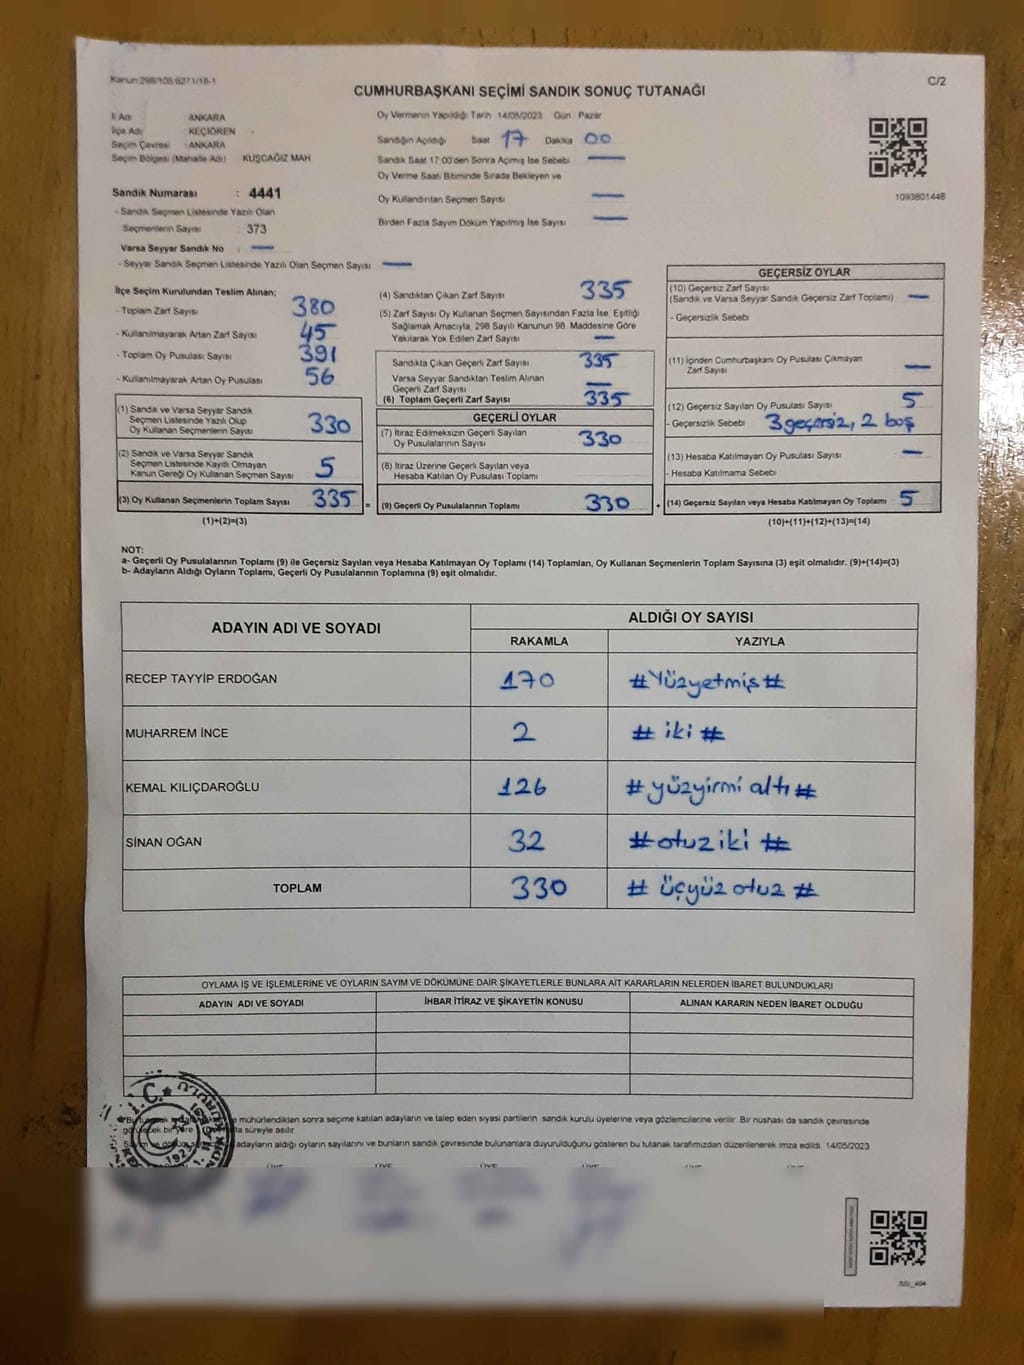 Kanun:298/105,6271/18-1
C/2
CUMHURBAŞKANI SEÇİMİ SANDIK SONUÇ TUTANAĞI
İl Adı ANKARA
İlçe Adı KEÇİÖREN
Seçim Çevresi : ANKARA
Seçim Bölgesi (Mahalle Adı) KUŞCAĞIZ MAH
Sandık Numarası : 4441
- Sandık Seçmen Listesinde Yazılı Olan
Seçmenlerin Sayısı : 373
Varsa Seyyar Sandık No : —
- Seyyar Sandık Seçmen Listesinde Yazılı Olan Seçmen Sayısı —
Oy Vermenin Yapıldığı Tarih 14/05/2023 Gün Pazar
Sandığın Açıldığı Saat 17 Dakika 00
Sandık Saat 17:00'den Sonra Açımış İse Sebebi —
Oy Verme Saati Bitiminde Sırada Bekleyen ve
Oy Kullandırılan Seçmen Sayısı —
Birden Fazla Sayım Döküm Yapılmış İse Sayısı —
1093801448
İlçe Seçim Kurulundan Teslim Alınan;
- Toplam Zarf Sayısı 380
- Kullanılmayarak Artan Zarf Sayısı 45
- Toplam Oy Pusulası Sayısı 391
- Kullanılmayarak Artan Oy Pusulası 56
(1) Sandık ve Varsa Seyyar Sandık
Seçmen Listesinde Yazılı Olup
Oy Kullanan Seçmenlerin Sayısı 330
(2) Sandık ve Varsa Seyyar Sandık
Seçmen Listesinde Kayıtlı Olmayan
Kanun Gereği Oy Kullanan Seçmen Sayısı 5
(3) Oy Kullanan Seçmenlerin Toplam Sayısı 335 =
(1)+(2)=(3)
(4) Sandıktan Çıkan Zarf Sayısı 335
(5) Zarf Sayısı Oy Kullanan Seçmen Sayısından Fazla İse, Eşitliği
Sağlamak Amacıyla, 298 Sayılı Kanunun 98. Maddesine Göre
Yakılarak Yok Edilen Zarf Sayısı —
Sandıkta Çıkan Geçerli Zarf Sayısı 335
Varsa Seyyar Sandıktan Teslim Alınan
Geçerli Zarf Sayısı —
(6) Toplam Geçerli Zarf Sayısı 335
GEÇERLİ OYLAR
(7) İtiraz Edilmeksizin Geçerli Sayılan
Oy Pusulalarının Sayısı 330
(8) İtiraz Üzerine Geçerli Sayılan veya
Hesaba Katılan Oy Pusulası Toplamı
(9) Geçerli Oy Pusulalarının Toplamı 330 +
GEÇERSİZ OYLAR
(10) Geçersiz Zarf Sayısı
(Sandık ve Varsa Seyyar Sandık Geçersiz Zarf Toplamı) —
- Geçersizlik Sebebi
(11) İçinden Cumhurbaşkanı Oy Pusulası Çıkmayan
Zarf Sayısı —
(12) Geçersiz Sayılan Oy Pusulası Sayısı 5
- Geçersizlik Sebebi 3 geçersiz, 2 boş
(13) Hesaba Katılmayan Oy Pusulası Sayısı —
- Hesaba Katılmama Sebebi
(14) Geçersiz Sayılan veya Hesaba Katılmayan Oy Toplamı 5
(10)+(11)+(12)+(13)=(14)
NOT:
a- Geçerli Oy Pusulalarının Toplamı (9) ile Geçersiz Sayılan veya Hesaba Katılmayan Oy Toplamı (14) Toplamları, Oy Kullanan Seçmenlerin Toplam Sayısına (3) eşit olmalıdır. (9)+(14)=(3)
b- Adayların Aldığı Oyların Toplamı, Geçerli Oy Pusulalarının Toplamına (9) eşit olmalıdır.
ADAYIN ADI VE SOYADI ALDIĞI OY SAYISI
RAKAMLA YAZIYLA
RECEP TAYYİP ERDOĞAN 170 #Yüzyetmiş#
MUHARREM İNCE 2 # iki #
KEMAL KILIÇDAROĞLU 126 #yüzyirmi altı#
SİNAN OĞAN 32 #otuziki #
TOPLAM 330 # üçyüz otuz #
OYLAMA İŞ VE İŞLEMLERİNE VE OYLARIN SAYIM VE DÖKÜMÜNE DAİR ŞİKAYETLERLE BUNLARA AİT KARARLARIN NELERDEN İBARET BULUNDUKLARI
ADAYIN ADI VE SOYADI İHBAR İTİRAZ VE ŞİKAYETİN KONUSU ALINAN KARARIN NEDEN İBARET OLDUĞU
mühürlendikten sonra seçime katılan adayların ve talep eden siyasi partilerin sandık kurulu üyelerine veya gözlemcilerine verilir. Bir nüshası da sandık çevresinde
süreyle asılır.
adayların aldığı oyların sayılarını ve bunların sandık çevresinde bulunanlara duyurulduğunu gösteren bu tutanak tarafımızdan düzenlenerek imza edildi. 14/05/2023
T.C.
1923